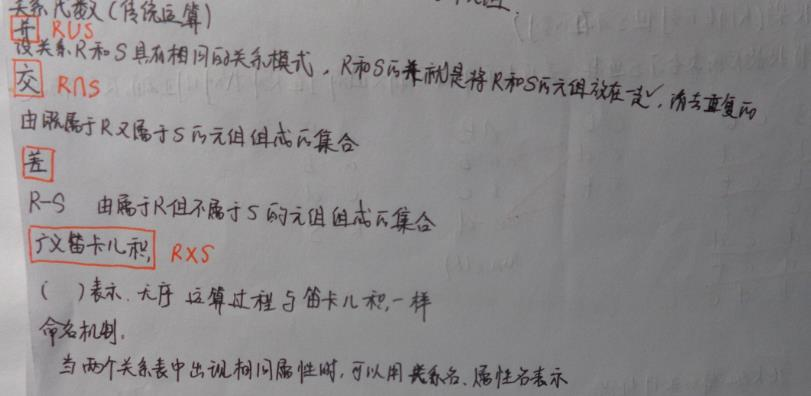 关系代数(传统运算)
并 R∪S
设关系R和S具有相同的关系模式,R和S的并就是将R和S的元组放在一起,消去重复的
交 R∩S
由既属于R又属于S的元组组成的集合
差
R-S 由属于R但不属于S的元组组成的集合
广义笛卡儿积, R×S
( )表示.无序 运算过程与笛卡儿积,一样
命名机制.
当两个关系表中出现相同属性时,可以用 关系名.属性名表示